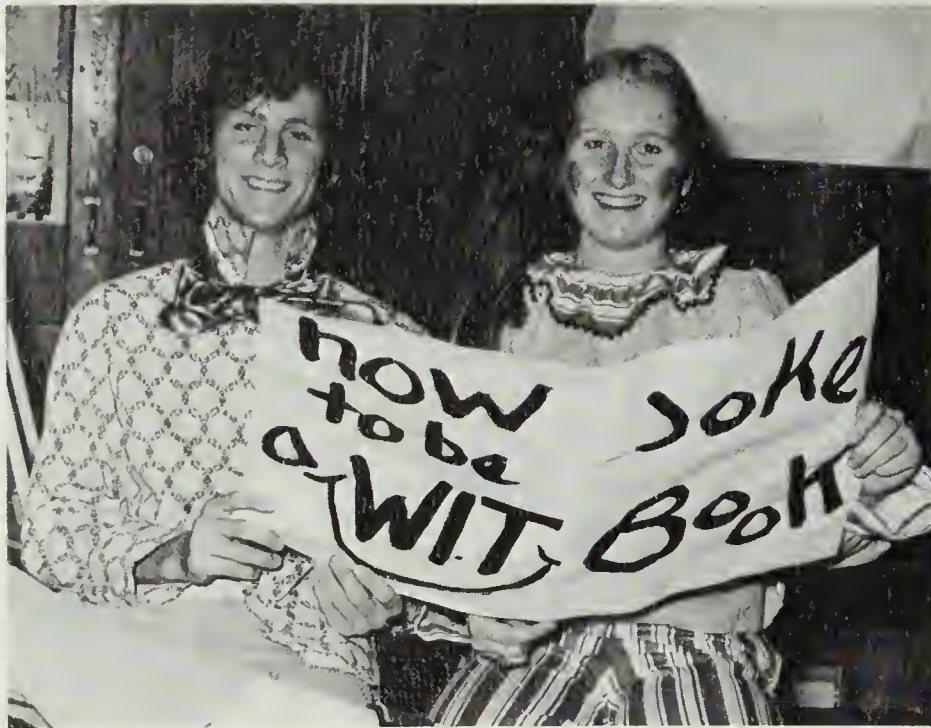 how
to be
a WIT
JOKe
BOOK